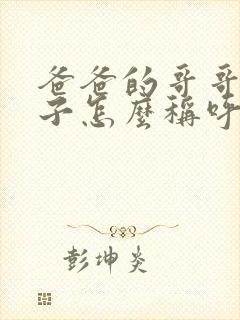 爸爸的哥哥
子怎麼稱呼
彭坤炎